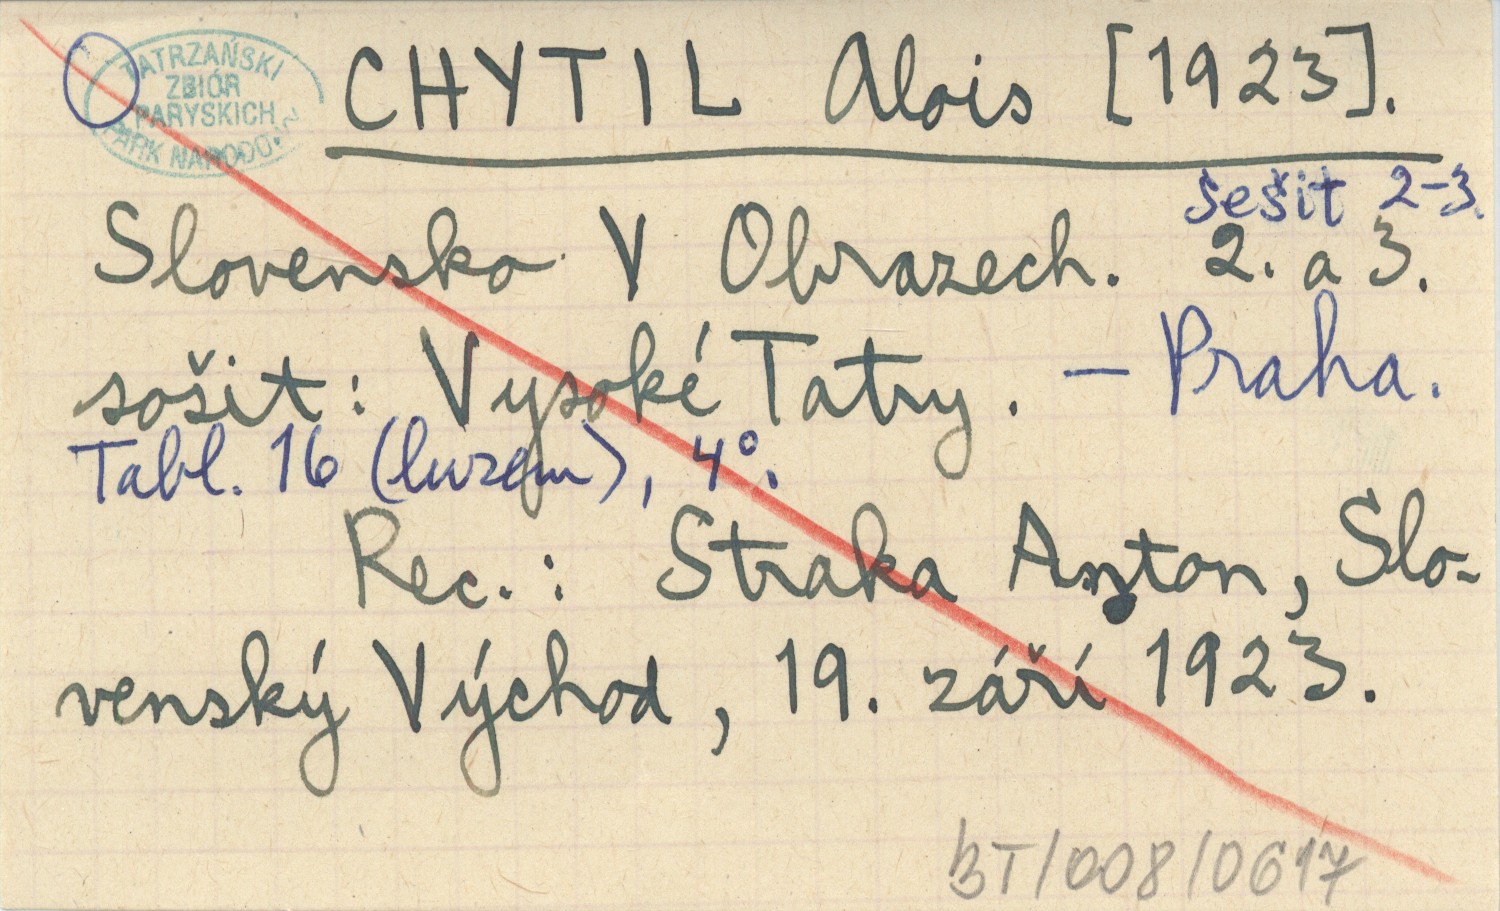 TATRZAŃSKI
ZBIÓR
PARYSKICH
PARK NARODOWY
CHYTIL Alois [1923].
sešit 2-3.
Slovensko V Obrazech. 2. a 3.
sošit: Vysoké Tatry. – Praha.
Tabl. 16 (luzem), 4°.
Rec.: Straka Anton, Slo-
venský Východ, 19. září 1923.
BT/008/0617